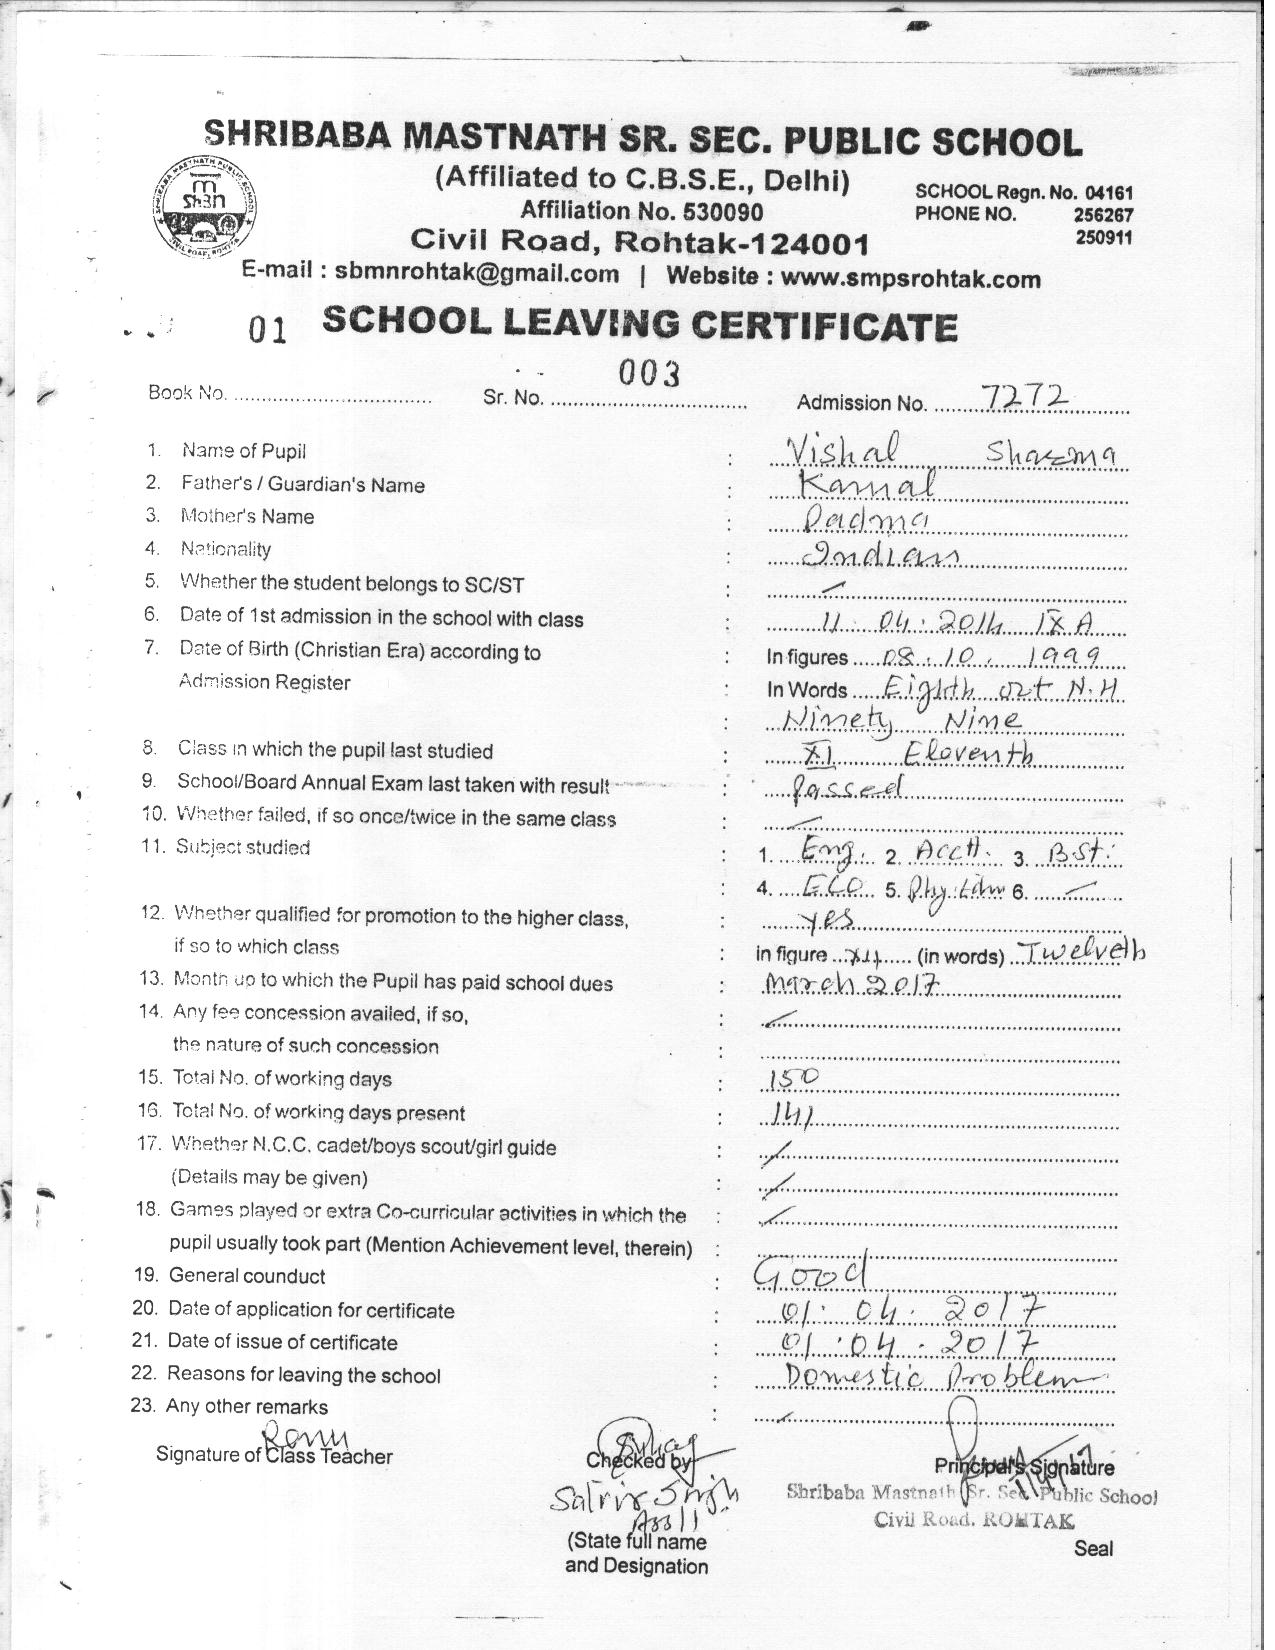 SHRIBABA MASTNATH SR. SEC. PUBLIC SCHOOL
(Affiliated to C.B.S.E., Delhi)
Affiliation No. 530090
SCHOOL Regn. No. 04161
PHONE NO. 256267
250911
Civil Road, Rohtak-124001
E-mail : sbmnrohtak@gmail.com | Website : www.smpsrohtak.com
01 SCHOOL LEAVING CERTIFICATE
003
Book No. Sr. No. Admission No. 7272
1. Name of Pupil : Vishal Sharma
2. Father's / Guardian's Name : Kamal
3. Mother's Name : Padma
4. Nationality : Indian
5. Whether the student belongs to SC/ST :
6. Date of 1st admission in the school with class : 11. 04. 2014 IX A
7. Date of Birth (Christian Era) according to : In figures 08. 10. 1999
Admission Register : In Words Eighth oct N.H
: Ninety Nine
8. Class in which the pupil last studied : XI Eleventh
9. School/Board Annual Exam last taken with result : Passed
10. Whether failed, if so once/twice in the same class :
11. Subject studied : 1. Eng. 2. Acctt. 3. B.st.
: 4. ECO 5. Phy. Edu 6.
12. Whether qualified for promotion to the higher class, : yes
if so to which class : in figure XII (in words) Twelveth
13. Month up to which the Pupil has paid school dues : March 2017
14. Any fee concession availed, if so, :
the nature of such concession :
15. Total No. of working days : 150
16. Total No. of working days present : 141
17. Whether N.C.C. cadet/boys scout/girl guide :
(Details may be given) :
18. Games played or extra Co-curricular activities in which the :
pupil usually took part (Mention Achievement level, therein) :
19. General counduct : Good
20. Date of application for certificate : 01. 04. 2017
21. Date of issue of certificate : 01. 04. 2017
22. Reasons for leaving the school : Domestic Problem
23. Any other remarks :
Signature of Class Teacher
Checked by
Principal's Signature
Shribaba Mastnath Sr. Sec. Public School
Civil Road, ROHTAK
(State full name
and Designation
Seal